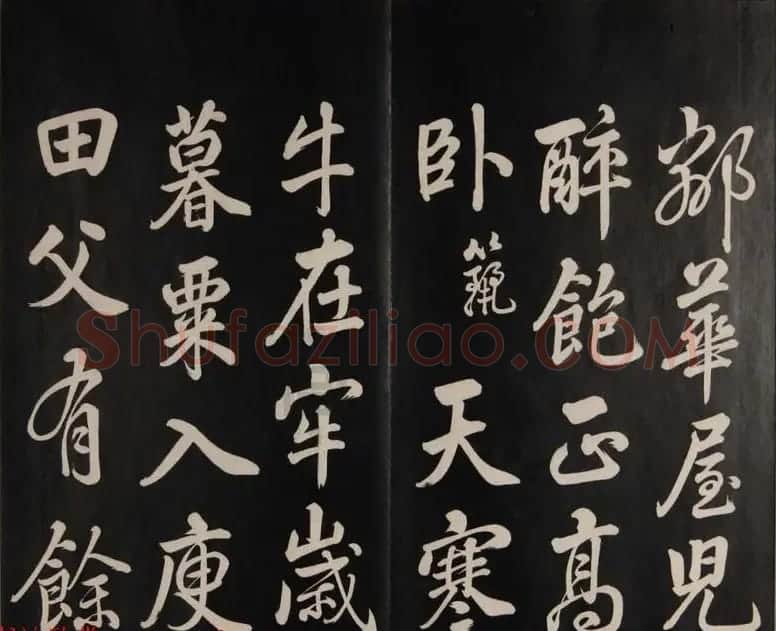 華屋兒
醉飽正高
卧 天寒
牛在牢歲
暮粟入庾
田父有餘
Shufaziliao.COM